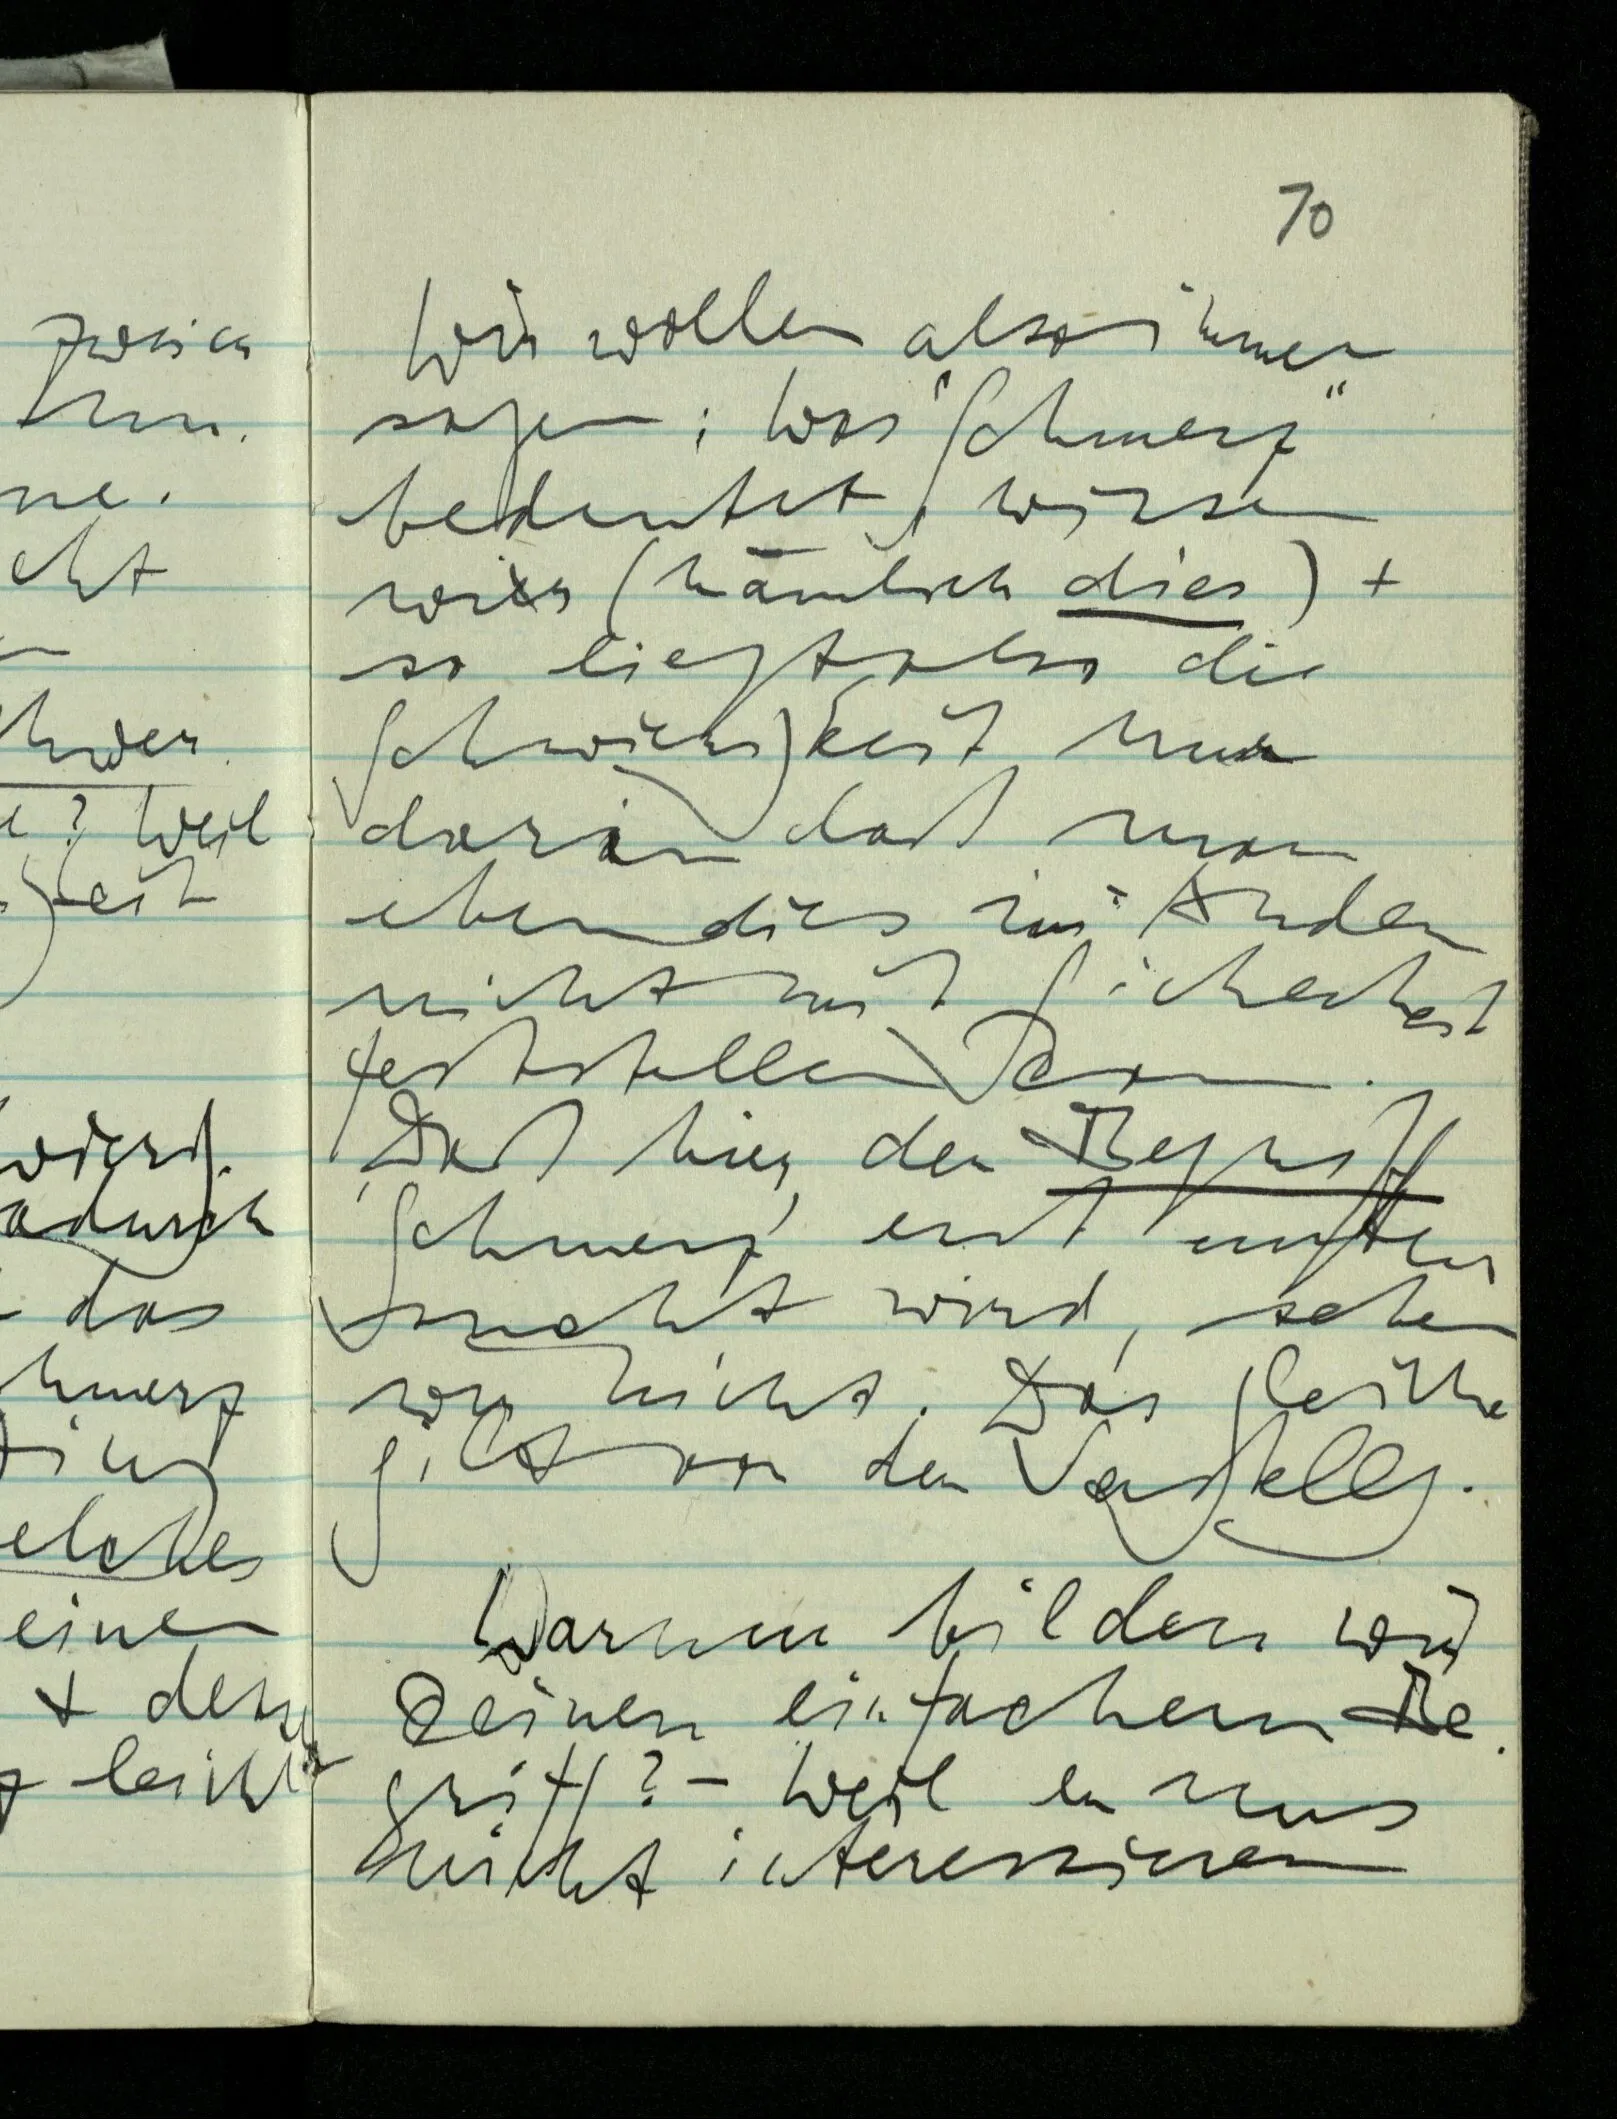 ne.
cht
? Weil
eit
adurch
das
hmerz
elches
einen
leicht
70
Wir wollen also immer
sagen: Was "Schmerz"
bedeutet, wissen
wir (nämlich dies) +
so liegt also die
Schwierigkeit nur
darin daß man
eben dies im Andern
nicht mit Sicherheit
feststellen kann.
Daß hier der Begriff
'Schmerz' erst unter
sucht wird, sehen
wir nicht. Das gleiche
gilt von der Verstellg.
Warum bilden wir
keinen einfachern Be
griff? – Weil er uns
nicht interessieren